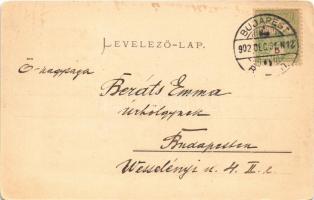 BUDAPEST
902 DEC
LEVELEZŐ-LAP.
Ő nagysága
Beráts Emma
úrhölgynek
Budapesten
Wesselényi u. 4. II. e.